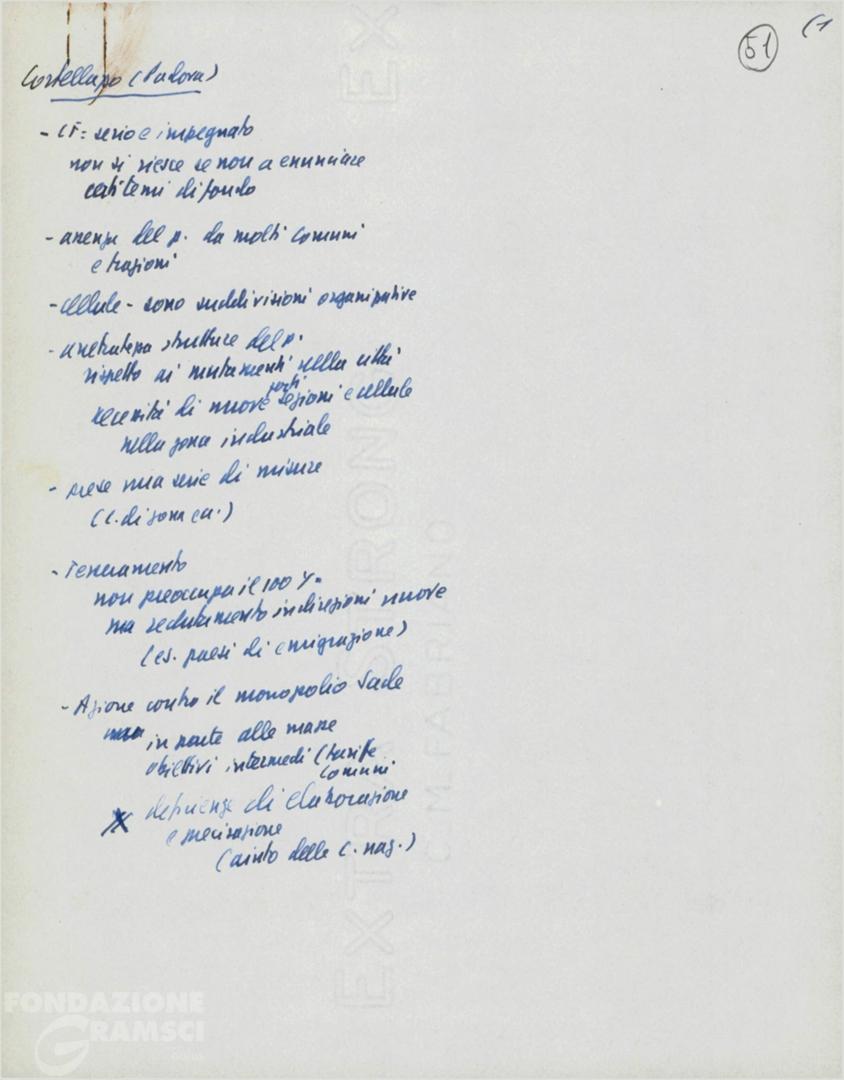 51
Cortellazzo (Padova)
- CF = serio e impegnato
non si riesce se non a enunciare
certi temi di fondo
- assenza del p. da molti comuni
e frazioni
- cellule - sono suddivisioni organizzative
- arretratezza strutture del p.
rispetto ai mutamenti nella città
necessità di nuove forti sezioni e cellule
nella zona industriale
- prese una serie di misure
(C. di zona ecc.)
- Tesseramento
non preoccupa il 100%
ma reclutamento in direzioni nuove
(es. paesi di emigrazione)
- Azione contro il monopolio Sade
in parte alle masse
obiettivi intermedi (tariffe
comuni
deficienze di elaborazione
e precisazione
(aiuto delle C. naz.)
EXTRA STRONG EX
C.M. FABRIANO
FONDAZIONE
GRAMSCI